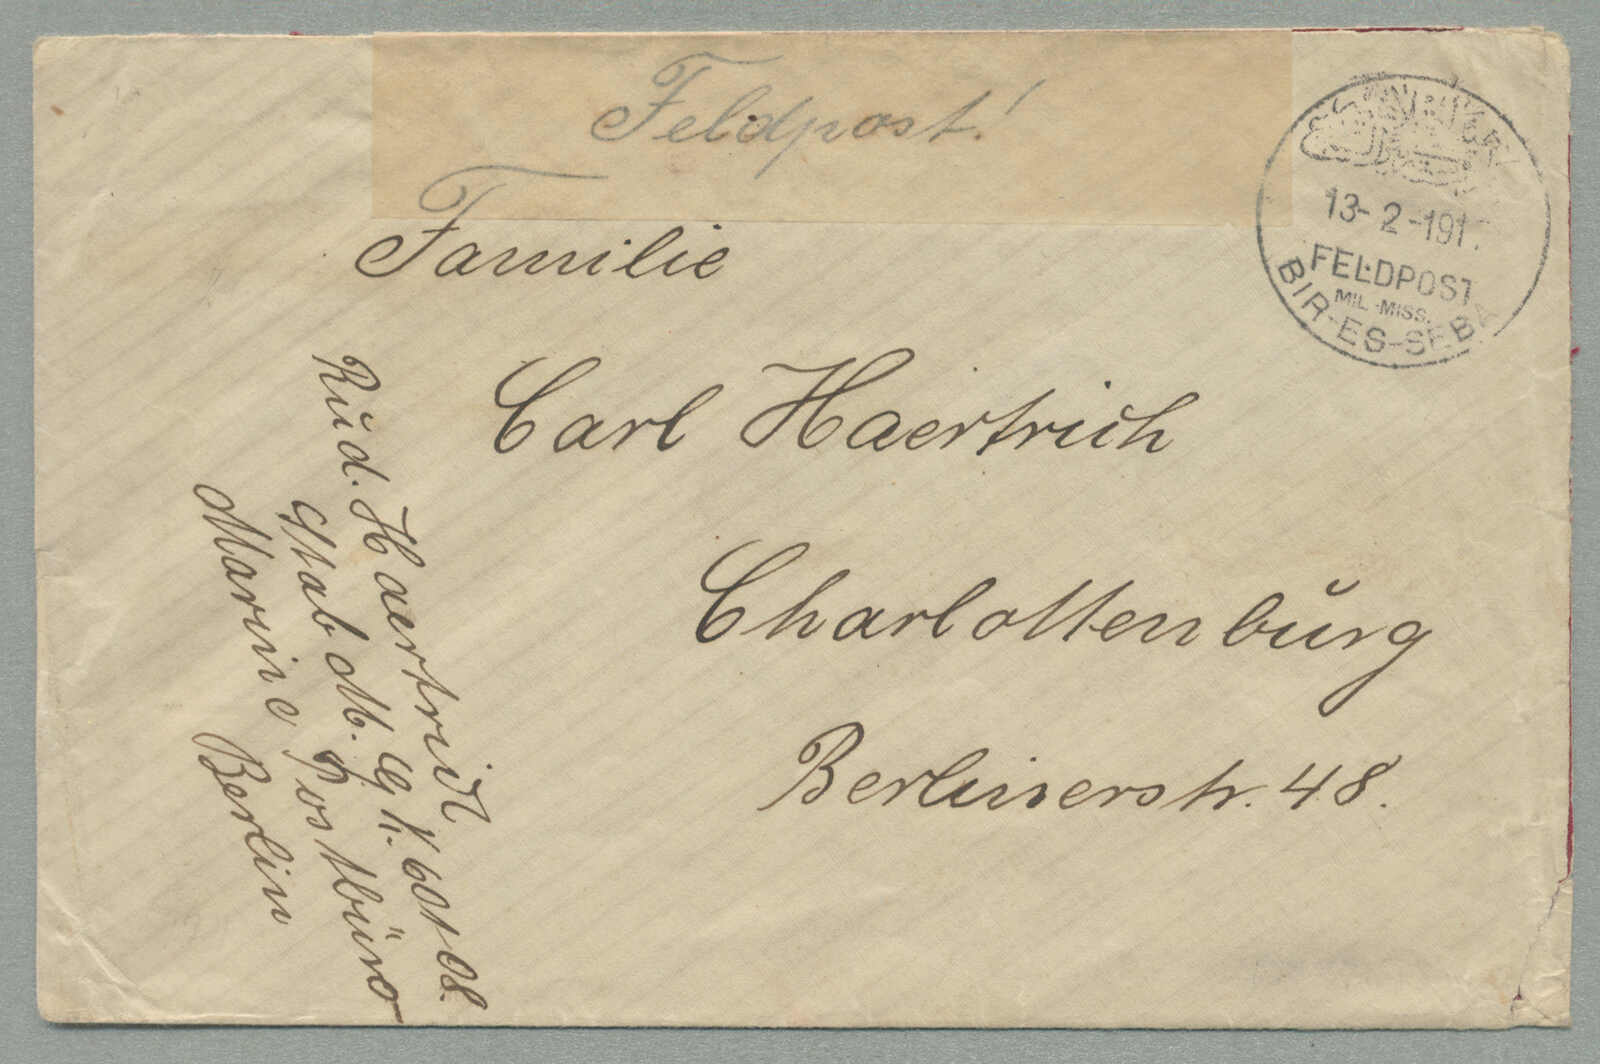 Feldpost!
13-2-191
FELDPOST
MIL.-MISS.
BIR-ES-SEBA
Familie
Carl Haertrich
Charlottenburg
Berlinerstr. 48.
Rud. Haertrich
Stab M. G. K. 601 08.
Marine Postbüro
Berlin